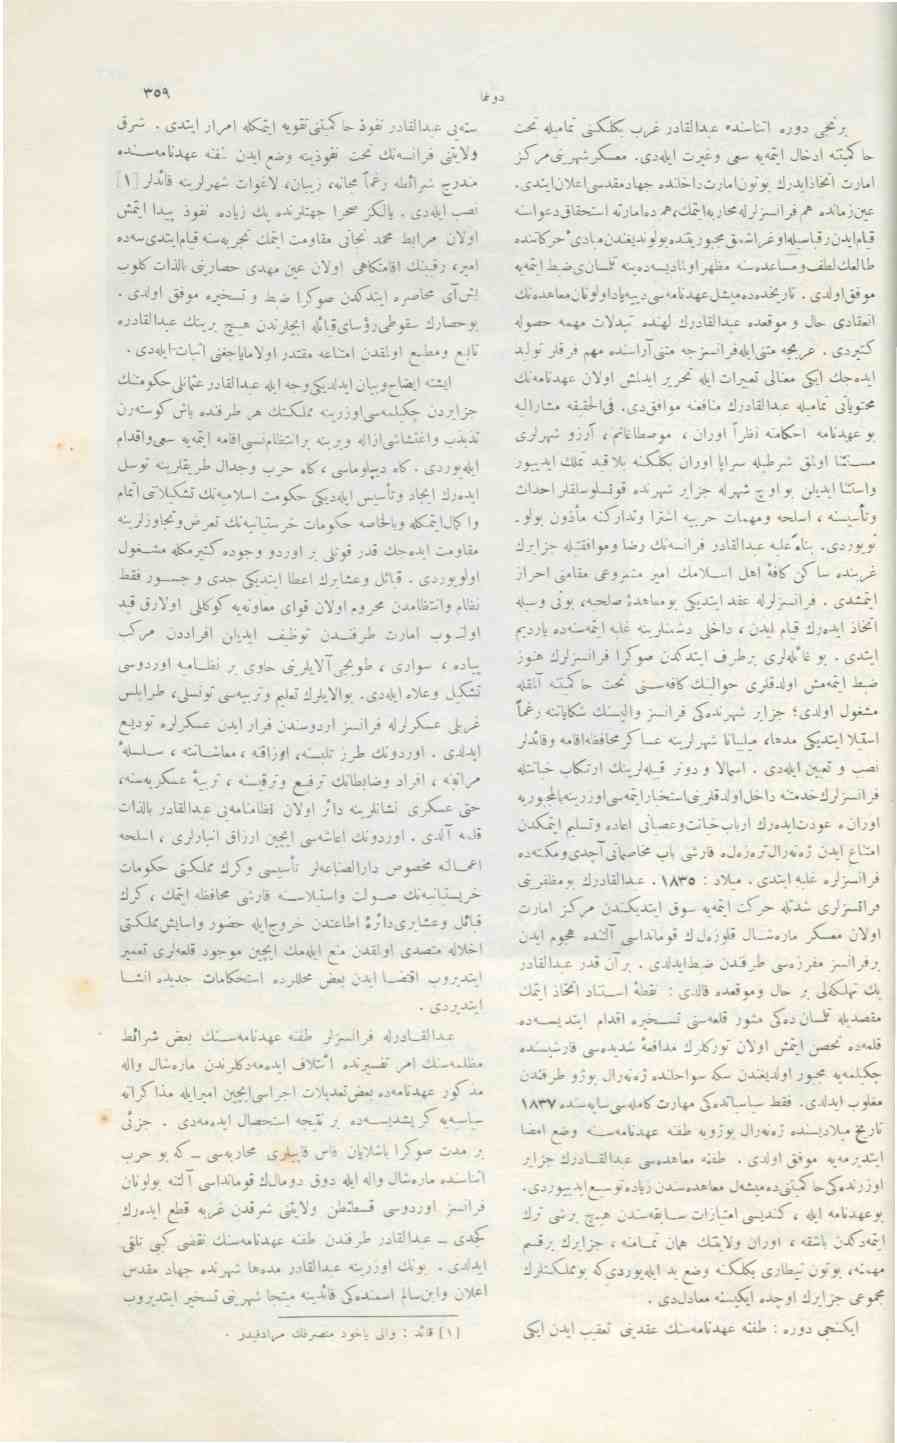 دوغا
٣٥٩
برنجی دوره اثناسنده عبدالقادر غرب بكلكنی تمامیله تحت
حاكمیتنه ادخال ایتمه‌یه سعی وغیرت ایله‌دی. معسكر شهرینی مركز
امارت اتخاذ ایدرك بوتون امارت داخلنده جهاد مقدسی اعلان ایتدی.
عین زمانده هم فرانسزلرله محاربه ایتمك، هم ده امارته استحقاق دعواسنه
قیام ایدن رقبا سیله اوغراشمق مجبوریتنده بولوندیغندن مبادیء حركاتنده
طالعك لطف ومساعده‌سنه مظهر اولمادیسه‌ده ینه تلمسان ی ضبط ایتمه‌یه
موفق اولدی. تاریخده ده میشل عهدنامه‌سی دییه یاد اولونان معاهده‌نك
انعقادی حال و موقعده عبدالقادرك لهنده تبدلات مهمه حصوله
كتیردی. عربجه متنی ایله فرانسزجه متنی آراسنده مهم فرقلر تولید
ایده‌جك ایكی معنالی تعبیرات ایله تحریر ایدلمش اولان عهدنامه‌نك
محتویاتی تمامیله عبدالقادرك منافعنه موافق دی. فی‌الحقیقه مشارالیه
بو عهدنامه احكامنه نظراً اوران، موصطاغانم، آرزو شهرلری
مستثنا اولمق شرطیله سراپا اوران بكلكنه بلاقید تملك ایدییور
واستثنا ایدیلن بو اوچ شهرله جزایر شهرنده قونسولوسلقلر احداث
وتأسیسنه، اسلحه ومهمات حربیه اشترا وتداركنه مأذون بولو-
نویوردی. بناءً علیه عبدالقادر فرانسه‌نك رضا وموافقتیله جزایرك
غربنده ساكن كافهٔ اهل اسلامك امیر مشروعی مقامنی احراز
ایتمشدی. فرانسزلرله عقد ایتدیكی بو معاهدهٔ صلحیه، بونی وسیله
اتخاذ ایده‌رك قیام ایدن، داخلی دشمنلرینه غلبه ایتمه‌سنه‌ده یاردیم
ایتدی. بو غائله‌لری برطرف ایتدكدن صوكرا فرانسزلرك هنوز
ضبط ایتمه‌مش اولدقلری حوالینك كافه‌سنی تحت حاكمیتنه آلمقله
مشغول اولدی؛ جزایر شهرنده‌كی فرانسز والیسنك شكایاتنه رغماً
استیلا ایتدیكی مده‌ا، میلیانا شهرلرینه عساكر محافظه اقامه وقائدلر
نصب و تعیین ایله‌دی. اسمالا و دوئر قبیله‌لرینك ارتكاب خیانتله
فرانسزلرك خدمتنه داخل اولدقلرینی استخبار ایتمه‌سی اوزرینه بالمجبوریه
اورانه عودت ایده‌رك ارباب خیانت وعصیانی اعاده وتسلیم ایتمكدن
امتناع ایدن ژه‌نه‌رال تره‌زه‌له قارشی باب مخاصماتی آچدی ومكته‌ده
فرانسزلره غلبه ایتدی. میلاد: ١٨٣٥. عبدالقادرك بو مظفریتی
فرانسزلری شدتله حركت ایتمه‌یه سوق ایتدیكندن مركز امارت
اولان معسكر ماره‌شال قلوزه‌ل ك قوماندا‌سی آلتنده هجوم ایدن
بر فرانسز مفرزه‌سی طرفندن ضبط ایدلدی. بر آن قدر عبدالقادر
پك تهلكه‌لی بر حال وموقعده قالدی: نقطهٔ استناد اتخاذ ایتمك
مقصدیله تلمسان ده‌كی مشور قلعه‌سنی تسخیره اقدام ایتدیسه‌ده
قلعه‌ده تحصن ایتمش اولان توركلرك مدافعهٔ شدیده‌سی قارشیسنده
چكیلمه‌یه مجبور اولدیغندن سكه سواحلنده ژه‌نه‌رال بوژو طرفندن
مغلوب ایدلدی. فقط سیاسیاتده‌كی مهارت كامله‌سی سایه‌سنده ١٨٣٧
تاریخ میلادیسنده ژه‌نه‌رال بوژویه طفنه عهدنامه‌سنه وضع امضا
ایتدیرمه‌یه موفق اولدی. طفنه معاهده‌سی عبدالقادرك جزایر
اوزرنده‌كی حاكمیتنی ده‌میشه‌ل معاهده‌سندن زیاده توسیع ایدییوردی.
بو عهدنامه ایله، كندیسی امتیازات سابقه‌سندن هیچ برشی ترك
ایتمه‌دكدن باشقه، اوران ولایتنك همان تمامنه، جزایرك بر قسم
مهمنه، بوتون تیطاری بكلكنه وضع ید ایله‌یوردی كه بو مملكتلرك
مجموعی جزایرك اوچده ایكیسنه معادل‌دی.
ایكنجی دوره: طفنه عهدنامه‌سنك عقدینی تعقیب ایدن ایكی
سنه‌یی عبدالقادر نفوذ حاكمیتنی تقویه ایتمكله امرار ایتدی. شرق
ولایتنی فرانسه‌نك تحت نفوذینه وضع ایدن طفنه عهدنامه‌سنده
مندرج شرائطه رغماً مجانه، زیبان، لاغوات شهرلرینه قائدلر [١]
نصب ایله‌دی. یالكز صحرا جهتلرنده پك زیاده نفوذ پیدا ایتمش
اولان مرابط محمد تجانی مقاومت ایتمك تجربه‌سنه قیام ایتدی‌سه‌ده
امیر، رقیبنك اقامتگاهی اولان عین مهدی حصارینی بالذات كلوب
بش آی محاصره ایتدكدن صوكرا ضبط و تسخیره موفق اولدی.
بو حصارك سقوطی رؤسای قبائله ایچلرندن هیچ برینك عبدالقادره
تابع ومطیع اولمقدن امتناعه مقتدر اولامایاجغنی اثبات ایله‌دی.
ایشته ایضاح وبیان ایدلدیكی وجه ایله عبدالقادر عثمانلی حكومتنك
جزایردن چكیلمه‌سی اوزرینه مملكتك هر طرفنده باش كوسترن
تذبذب واغتشاشی ازاله ویرینه بر انتظام نسبی اقامه ایتمه‌یه سعی واقدام
ایله‌یوردی. كاه دیپلوماسی، كاه حرب وجدال طریقلرینه توسل
ایده‌رك ایجاد وتأسیس ایله‌دیكی حكومت اسلامیه‌نك تشكیلاتی اتمام
واكمال ایتمكله وبالخاصه حكومات خرستیانیه‌نك تعرض وتجاوزلرینه
مقاومت ایده‌جك قدر قوتلی بر اوردو وجوده كتیرمكله مشغول
اولویوردی. قبائل وعشایرك اعطا ایتدیكی جدی و جسور فقط
نظام وانتظامدن محروم اولان قوای معاونه‌یه كوكللی اولارق قید
اولنوب امارت طرفندن توظیف ایدیلن افراددن مركب
پیاده، سواری، طوبجی آلایلرینی حاوی بر نظامیه اوردوسی
تشكیل وعلاوه ایله‌دی. بو آلایلرك تعلیم وتربیه‌سی تونسلی، طرابلس
غربلی عسكرلرله فرانسز اردوسندن فرار ایدن عسكرلره تودیع
ایدلدی. اوردونك طرز تلبیسنه، اوزاقنه، معاشاتنه، سلسلهٔ
مراتبنه، افراد وضابطانك ترفیع وترقیسنه، تربیهٔ عسكریه‌سنه،
حتی عسكری نشانلرینه دائر اولان نظامنامه‌یی عبدالقادر بالذات
قلمه آلدی. اوردونك اعاشه‌سی ایچین ارزاق انبارلری، اسلحه
اعمالنه مخصوص دارالصناعه‌لر تأسیسی وكرك مملكتی حكومات
خریستیانیه‌نك صولت واستیلاسنه قارشی محافظه ایتمك، كرك
قبائل وعشایری دائرهٔ اطاعتدن خروج ایله حضور واسایش مملكتی
اخلاله متصدی اولمقدن منع ایله‌مك ایچین موجود قلعه‌لری تعمیر
ایتدیروب اقتضا ایدن بعض محللرده استحكامات جدیده انشا
ایتدیردی.
عبدالقادرله فرانسزلر طفنه عهدنامه‌سنك بعض شرائط
مظلمه‌سنك امر تفسیرنده ائتلاف ایده‌مه‌دكلرندن ماره‌شال واله
مذكور عهدنامه‌ده بعض تعدیلات اجراسی ایچین امیر ایله مذاكراته
سیاسیه‌یه كریشدیسه‌ده بر نتیجه استحصال ایده‌مه‌دی. جزئی
بر مدت صوكرا باشلایان فاس قاپیلری محاربه‌سی ــ كه بو حرب
اثناسنده ماره‌شال واله ایله دوق دومال ك قوماندا‌سی آلتنه بولونان
فرانسز اوردوسی قسطنطین ولایتنی شرقدن غربه قطع ایده‌رك
كچدی ــ عبدالقادر طرفندن طفنه عهدنامه‌سنك نقضی كبی تلقی
ایدلدی. بونك اوزرینه عبدالقادر مده‌ها شهرنده جهاد مقدس
اعلان وابن سالم اسمنده‌كی قائدینه میتجا شهرینی تسخیر ایتدیروب
[١] قائد: والی یاخود متصرفك مرادفیدر.